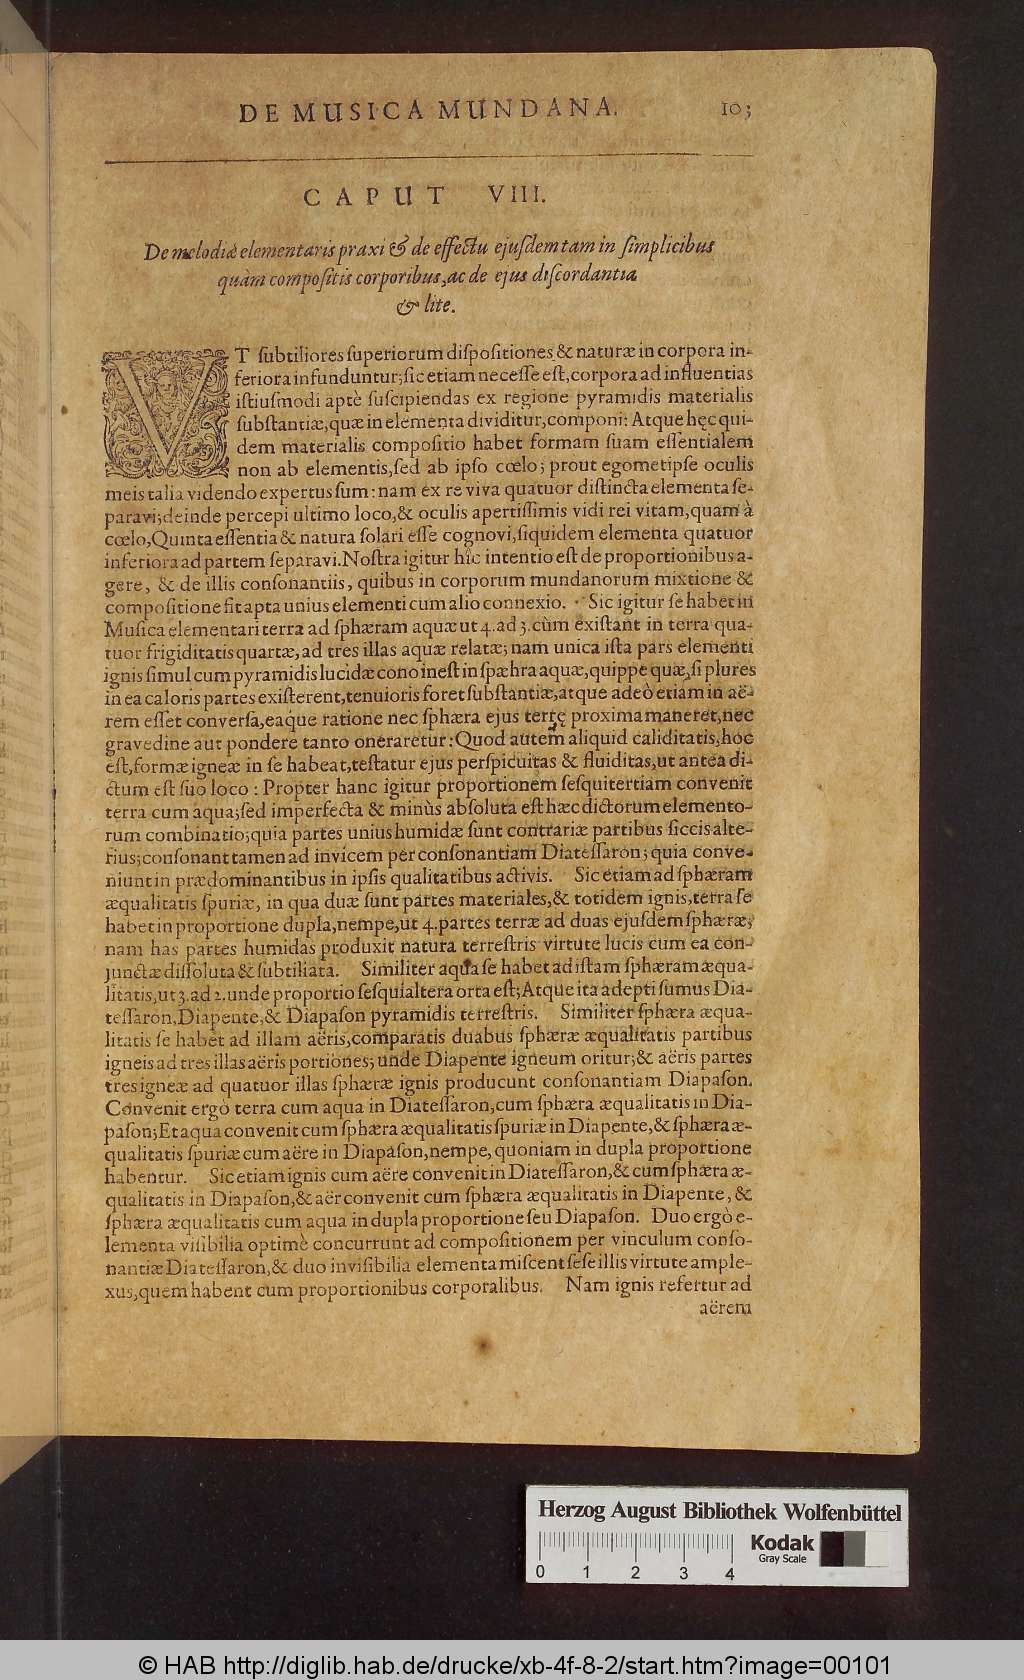 DE MUSICA MUNDANA. 103
CAPUT VIII.
De melodiæ elementaris praxi & de effectu ejuſdem tam in ſimplicibus
quàm compoſitis corporibus, ac de ejus diſcordantia
& lite.
VT ſubtiliores ſuperiorum diſpoſitiones & naturæ in corpora in-
feriora infunduntur; ſic etiam neceſſe eſt, corpora ad influentias
iſtiuſmodi aptè ſuſcipiendas ex regione pyramidis materialis
ſubſtantiæ, quæ in elementa dividitur, componi: Atque hęc qui-
dem materialis compoſitio habet formam ſuam eſſentialem
non ab elementis, ſed ab ipſo cœlo; prout egometipſe oculis
meis talia videndo expertus ſum: nam ex re viva quatuor diſtincta elementa ſe-
paravi; deinde percepi ultimo loco, & oculis apertiſſimis vidi rei vitam, quam à
cœlo, Quinta eſſentia & natura ſolari eſſe cognovi, ſiquidem elementa quatuor
inferiora ad partem ſeparavi. Noſtra igitur hîc intentio eſt de proportionibus a-
gere, & de illis conſonantiis, quibus in corporum mundanorum mixtione &
compoſitione fit apta unius elementi cum alio connexio. Sic igitur ſe habet in
Muſica elementari terra ad ſphæram aquæ ut 4. ad 3. cùm exiſtant in terra qua-
tuor frigiditatis quartæ, ad tres illas aquæ relatæ; nam unica iſta pars elementi
ignis ſimul cum pyramidis lucidæ cono ineſt in ſpæhra aquæ, quippe quæ, ſi plures
in ea caloris partes exiſterent, tenuioris foret ſubſtantiæ, atque adeò etiam in aë-
rem eſſet converſa, eaque ratione nec ſphæra ejus terrę proxima maneret, nec
gravedine aut pondere tanto oneraretur: Quod autem aliquid caliditatis, hoc
eſt, formæ igneæ in ſe habeat, teſtatur ejus perſpicuitas & fluiditas, ut antea di-
ctum eſt ſuo loco: Propter hanc igitur proportionem ſeſquitertiam convenit
terra cum aqua; ſed imperfecta & minùs abſoluta eſt hæc dictorum elemento-
rum combinatio; quia partes unius humidæ ſunt contrariæ partibus ſiccis alte-
rius; conſonant tamen ad invicem per conſonantiam Diateſſaron; quia conve-
niunt in prædominantibus in ipſis qualitatibus activis. Sic etiam ad ſphæram
æqualitatis ſpuriæ, in qua duæ ſunt partes materiales, & totidem ignis, terra ſe
habet in proportione dupla, nempe, ut 4. partes terræ ad duas ejuſdem ſphæræ;
nam has partes humidas produxit natura terreſtris virtute lucis cum ea con-
junctæ diſſoluta & ſubtiliata. Similiter aqua ſe habet ad iſtam ſphæram æqua-
litatis, ut 3. ad 2. unde proportio ſeſquialtera orta eſt; Atque ita adepti ſumus Dia-
teſſaron, Diapente, & Diapaſon pyramidis terreſtris. Similiter ſphæra æqua-
litatis ſe habet ad illam aëris, comparatis duabus ſphæræ æqualitatis partibus
igneis ad tres illas aëris portiones; unde Diapente igneum oritur; & aëris partes
tres igneæ ad quatuor illas ſphæræ ignis producunt conſonantiam Diapaſon.
Convenit ergò terra cum aqua in Diateſſaron, cum ſphæra æqualitatis in Dia-
paſon; Et aqua convenit cum ſphæra æqualitatis ſpuriæ in Diapente, & ſphæra æ-
qualitatis ſpuriæ cum aëre in Diapaſon, nempe, quoniam in dupla proportione
habentur. Sic etiam ignis cum aëre convenit in Diateſſaron, & cum ſphæra æ-
qualitatis in Diapaſon, & aër convenit cum ſphæra æqualitatis in Diapente, &
ſphæra æqualitatis cum aqua in dupla proportione ſeu Diapaſon. Duo ergò e-
lementa viſibilia optimè concurrunt ad compoſitionem per vinculum conſo-
nantiæ Diateſſaron, & duo inviſibilia elementa miſcent ſeſe illis virtute ample-
xus, quem habent cum proportionibus corporalibus. Nam ignis refertur ad
aërem
Herzog August Bibliothek Wolfenbüttel
Kodak
Gray Scale
0 1 2 3 4
© HAB http://diglib.hab.de/drucke/xb-4f-8-2/start.htm?image=00101